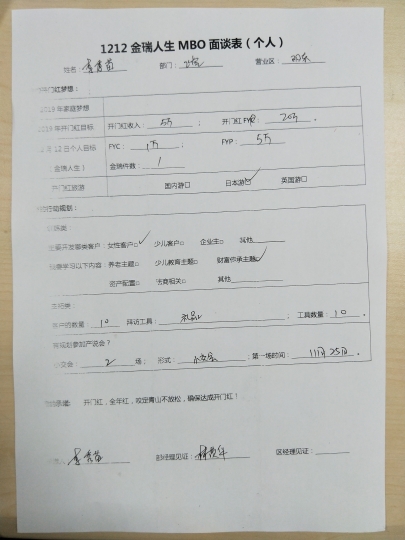 1212 金瑞人生 MBO 面谈表（个人）
姓名： 部门： 营业区：
开门红梦想：
2019 年家庭梦想
2019 年开门红目标 开门红收入： 5万 ； 开门红 FYP： 20万 。
月 12 日个人目标 FYC： 1万 ； FYP： 5万
金瑞人生） 金瑞件数： 1
开门红旅游 国内游□ 日本游□✓ 英国游□
主要开发哪类客户：女性客户□✓ 少儿客户□ 企业主□ 其他
学习以下内容：养老主题□ 少儿教育主题□ 财富传承主题□✓
资产配置□ 法商相关□ 其他
客户的数量： 10 拜访工具： 礼品 ； 工具数量： 10 。
参加产说会？
2 场； 形式： ；第一场时间： 11月25日 。
开门红，全年红，咬定青山不放松，确保达成开门红！
部经理见证： 区经理见证：